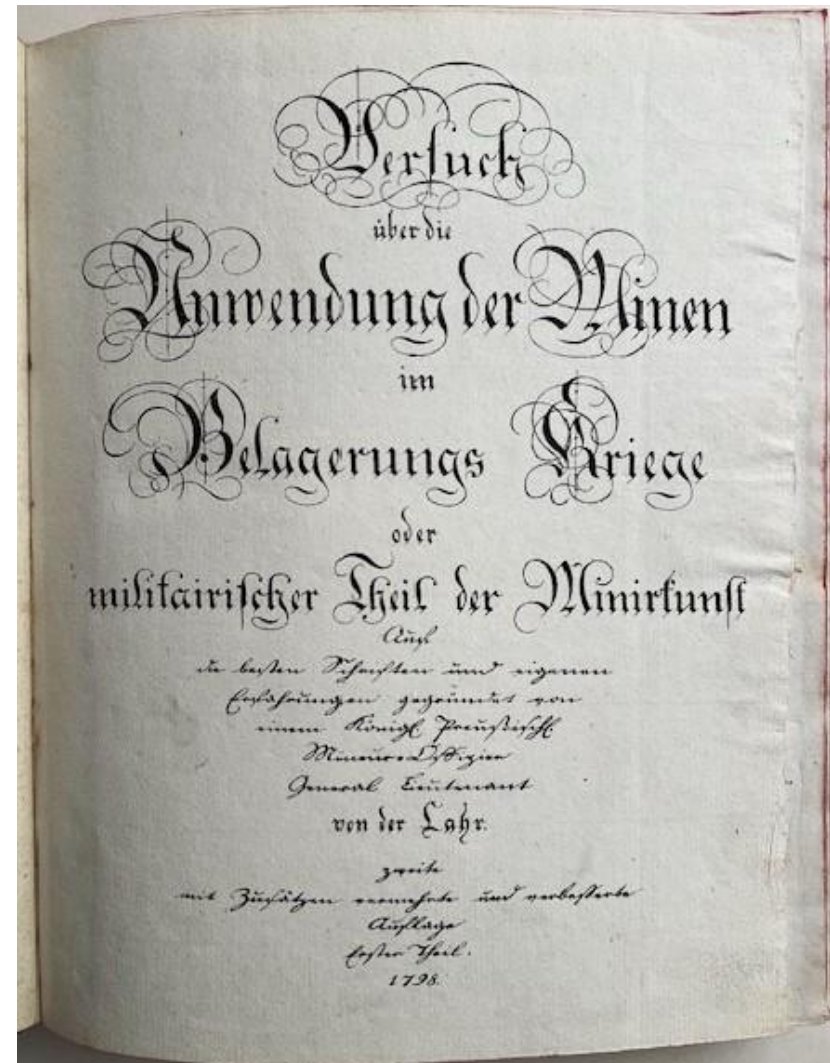 Versuch
über die
Anwendung der Minen
im
Belagerungs Kriege
oder
militairischer Theil der Minirkunst
Auf
die besten Schriften und eigenen
Erfahrungen gegründet von
einem Königl. Preußischl.
Mineur-Offizier
General Lieutenant
von der Lahr.
zweite
mit Zusätzen vermehrte und verbesserte
Auflage
Erster Theil.
1798.